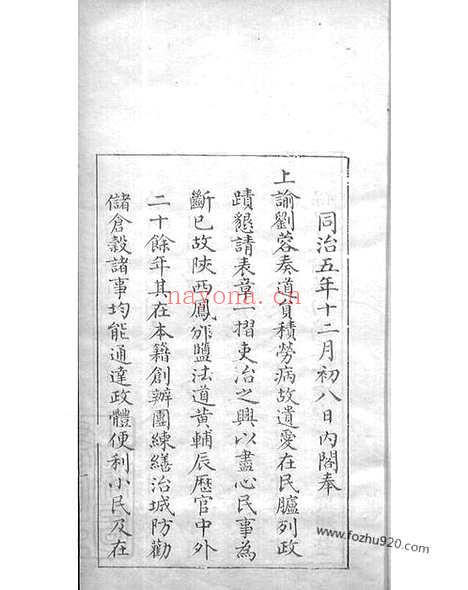 同治五年十二月初八日內閣奉
上諭劉蓉奏道員積勞病故遺愛在民臚列政
蹟懇請表章一摺吏治之興以盡心民事為
斷已故陝西鳳邠鹽法道黃輔辰歷官中外
二十餘年其在本籍創辦團練繕治城防勸
儲倉穀諸事均能通達政體便利小民及在
nayona.cn
www.fozhu920.com